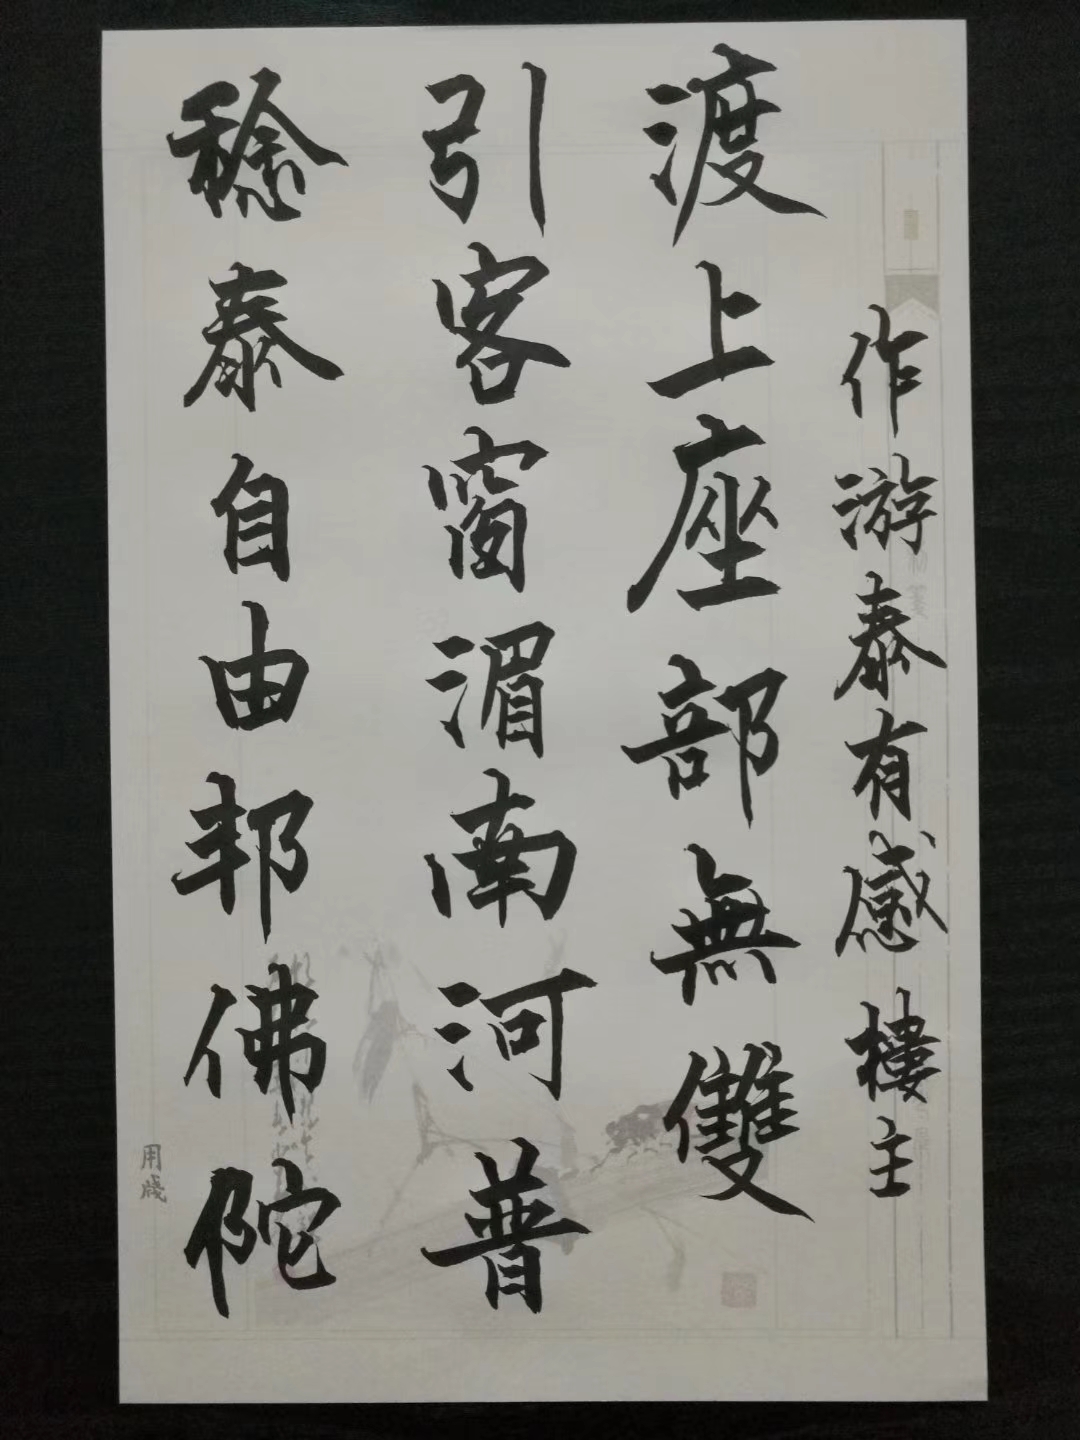 稔泰自由邦佛陀
引客窗湄南河普
渡上座部無雙
作游泰有感 樓主
用牋